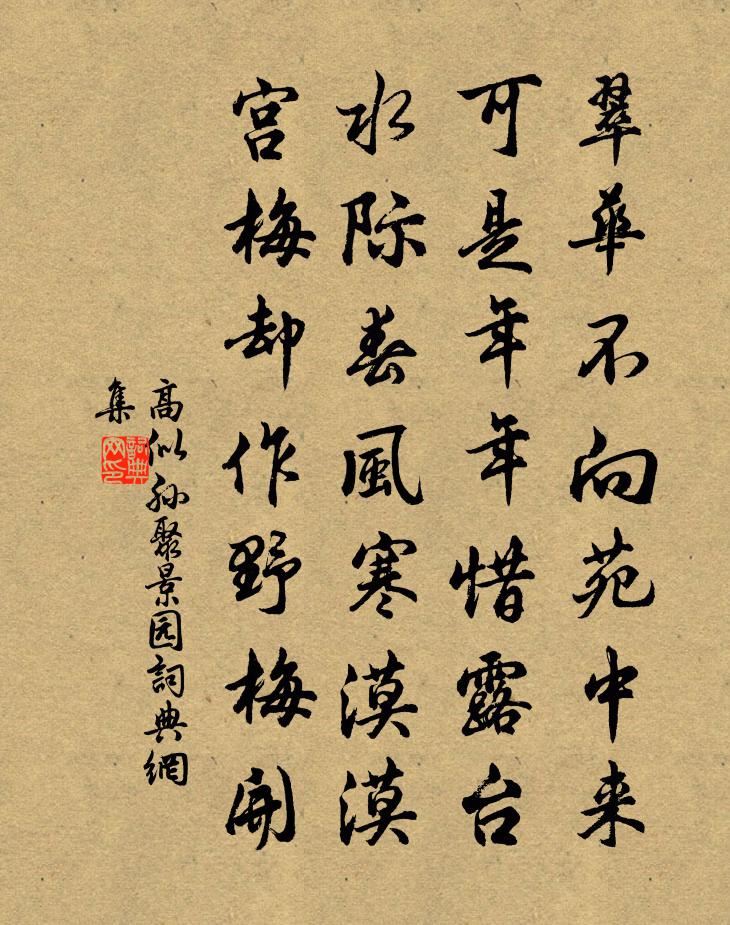 翠華不向苑中来
可是年年惜露台
水际春風寒漠漠
宫梅却作野梅開
高似孙聚景园詞典網
集
詞典网印